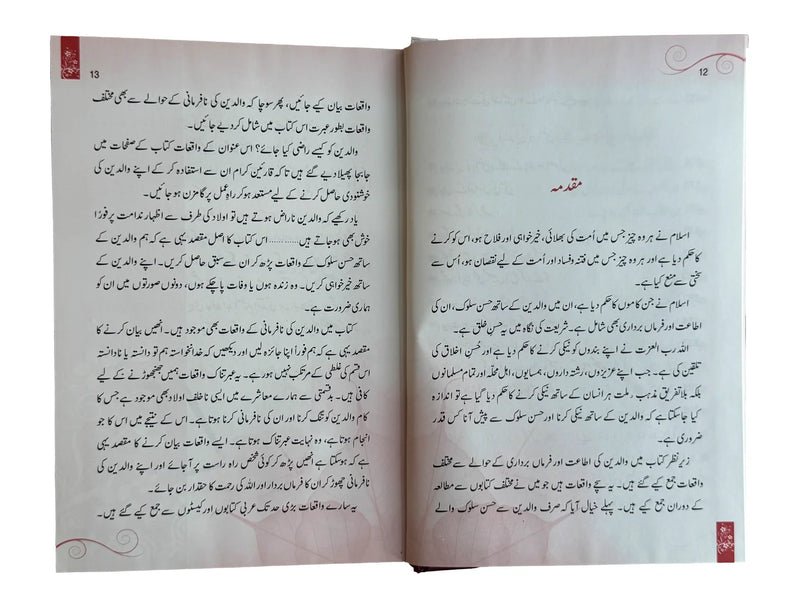 12
مقدمہ
اسلام نے ہر وہ چیز جس میں اُمت کی بھلائی، خیرخواہی اور فلاح ہو، اس کو کرنے
کا حکم دیا ہے اور ہر وہ چیز جس میں فتنہ وفساد اور اُمت کے لیے نقصان ہو، اُس سے
سختی سے منع کیا ہے۔
اسلام نے جن کاموں کا حکم دیا ہے، ان میں والدین کے ساتھ حسن سلوک، ان کی
اطاعت اور فرماں برداری بھی شامل ہے۔ شریعت کی نگاہ میں یہ حسن خلق ہے۔
اللہ رب العزت نے اپنے بندوں کو نیکی کرنے کا حکم دیا ہے اور حُسن اخلاق کی
تلقین کی ہے۔ جب اپنے عزیزوں، رشتہ داروں، ہمسایوں، اہل محلہ اور تمام مسلمانوں
بلکہ بلاتفریق مذہب و ملت ہر انسان کے ساتھ نیکی کرنے کا حکم دیا گیا ہے تو اندازہ
کیا جاسکتا ہے کہ والدین کے ساتھ نیکی کرنا اور حسن سلوک سے پیش آنا کس قدر
ضروری ہے۔
زیر نظر کتاب میں والدین کی اطاعت اور فرماں برداری کے حوالے سے مختلف
واقعات جمع کیے گئے ہیں۔ یہ سچے واقعات ہیں جو میں نے مختلف کتابوں سے مطالعہ
کے دوران جمع کیے ہیں۔ پہلے خیال آیا کہ صرف والدین سے حسن سلوک والے
13
واقعات بیان کیے جائیں، پھر سوچا کہ والدین کی نافرمانی کے حوالے سے بھی مختلف
واقعات بطور عبرت اس کتاب میں شامل کر دیے جائیں۔
والدین کو کیسے راضی کیا جائے؟ اس عنوان کے واقعات کتاب کے صفحات میں
جابجا پھیلا دیے گئے ہیں تاکہ قارئین کرام ان سے استفادہ کر کے اپنے والدین کی
خوشنودی حاصل کرنے کے لیے مستعد ہو کر راہِ عمل پر گامزن ہو جائیں۔
یاد رکھیے کہ والدین ناراض ہوتے ہیں تو اولاد کی طرف سے اظہار ندامت پر فوراً
خوش بھی ہو جاتے ہیں ........... اس کتاب کا اصل مقصد یہی ہے کہ ہم والدین کے
ساتھ حسن سلوک کے واقعات پڑھ کر ان سے سبق حاصل کریں۔ اپنے والدین کے
ساتھ خیرخواہی کریں۔ وہ زندہ ہوں یا وفات پاچکے ہوں، دونوں صورتوں میں ان کو
ہماری ضرورت ہے۔
کتاب میں والدین کی نافرمانی کے واقعات بھی موجود ہیں۔ انھیں بیان کرنے کا
مقصد یہی ہے کہ ہم فوراً اپنا جائزہ لیں اور دیکھیں کہ خدانخواستہ ہم تو دانستہ یا نادانستہ
اس قسم کی غلطی کے مرتکب نہیں ہورہے۔ یہ عبرتناک واقعات ہمیں جھنجھوڑنے کے لیے
کافی ہیں۔ بدقسمتی سے ہمارے معاشرے میں ایسی ناخلف اولاد بھی موجود ہے جس کا
کام والدین کو تنگ کرنا اور ان کی نافرمانی کرنا ہوتا ہے۔ اس کے نتیجے میں اس کا جو
انجام ہوتا ہے، وہ نہایت عبرتناک ہوتا ہے۔ ایسے واقعات بیان کرنے کا مقصد یہی
ہے کہ ہوسکتا ہے انھیں پڑھ کر کوئی شخص راہ راست پر آجائے اور اپنے والدین کی
نافرمانی چھوڑ کر ان کا فرماں بردار اور اللہ کی رحمت کا حقدار بن جائے۔
یہ سارے واقعات بڑی حد تک عربی کتابوں اور کیسٹوں سے جمع کیے گئے ہیں۔